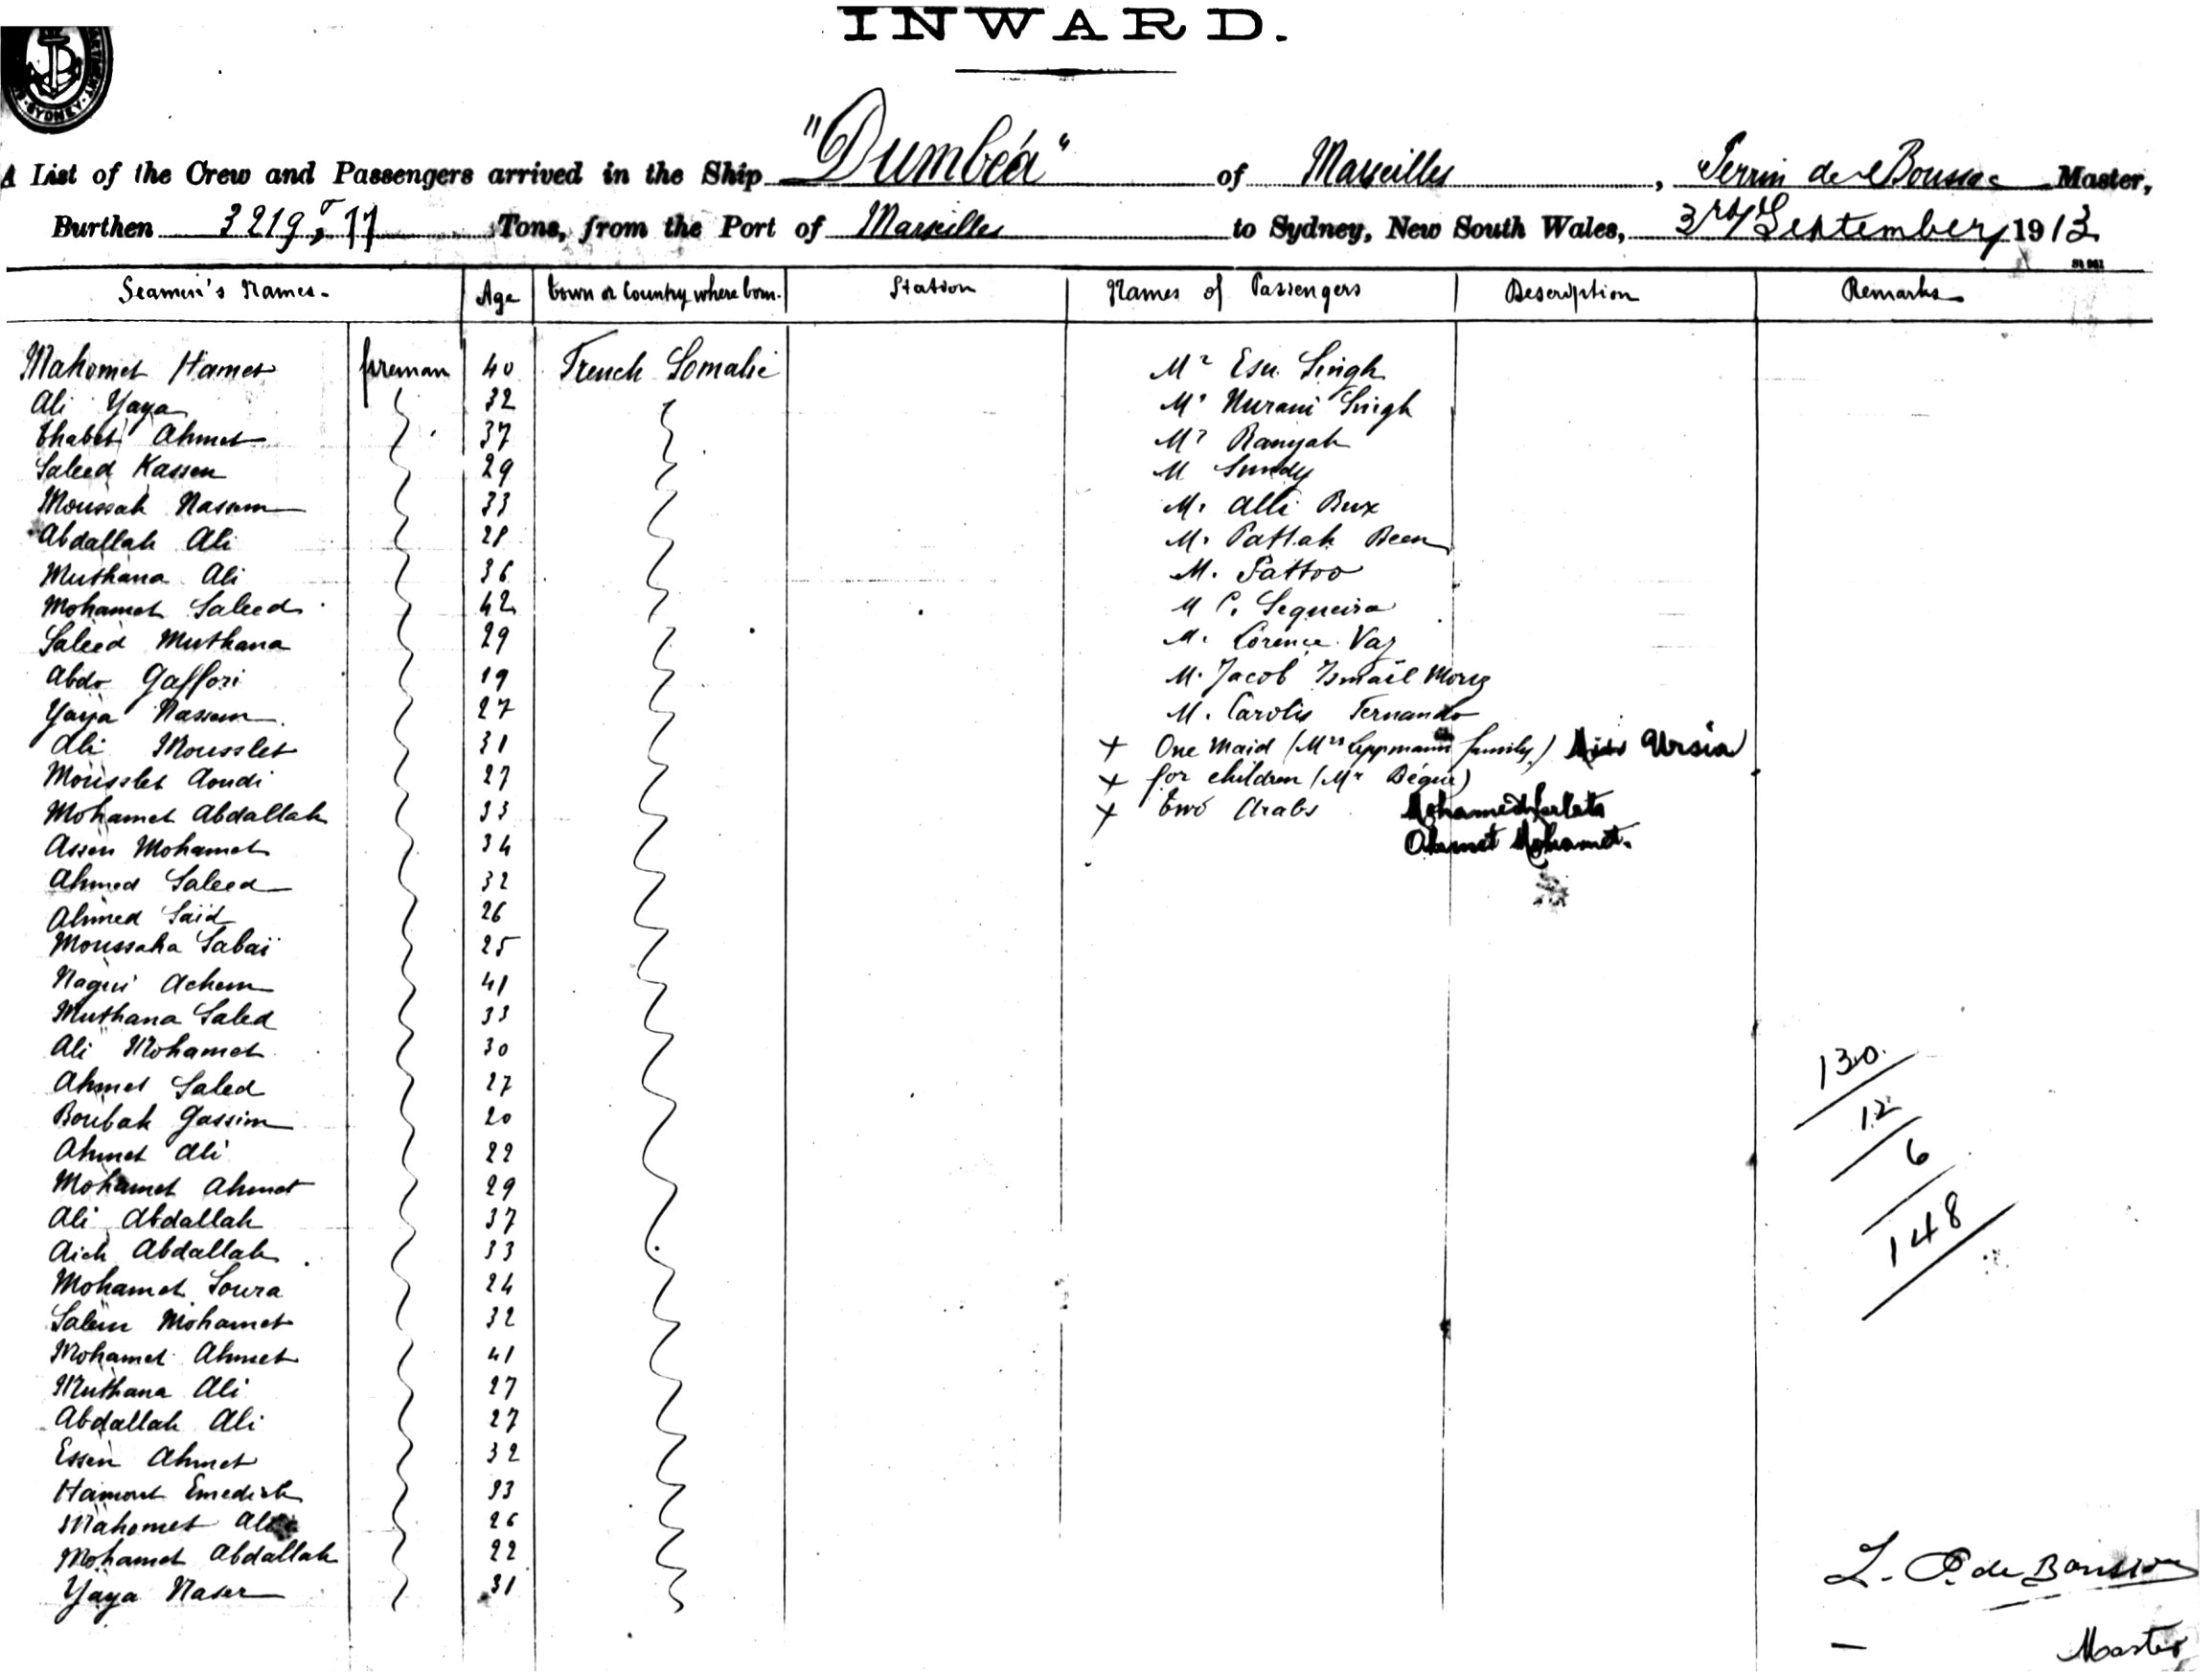 INWARD.
SYDNEY
A List of the Crew and Passengers arrived in the Ship "Dumbéa" of Marseilles, Perrin de Boussac Master,
Burthen 3219 T,77 Tons, from the Port of Marseilles to Sydney, New South Wales, 3rd September 1913
St 961
Seamen's Names. Age town or Country where born. Station Names of Passengers Description Remarks
Mahomet Hamet fireman 40 French Somalie Mr Esu Singh
Ali Yaya 32 Mr Nurani Singh
Thabet Ahmet 37 Mr Ranyah
Saleed Kassem 29 M Sundy
Moussah Nassem 33 M. Alli Bux
Abdallah Ali 28 M. Pattah Been
Muthana Ali 36 M. Pattoo
Mohamet Saleed 42 M C. Sequeira
Saleed Muthana 29 M. Lorence Vaz
Abdo Gaffori 19 M. Jacob Ismaël
Yaya Nassem 27 M. Carolis Fernando
Ali Mousslet 31 + One Maid (Mrs Leppmann family) Miss Ursia
Mousslet Aoudi 27 + for children (Mr Bégué)
Mohamet Abdallah 33 + two Arabs Mohamed
Assen Mohamet 34 Ahmet Mohamet.
Ahmed Saleed 32
Ahmed Saïd 26
Moussaha Sabaï 25
Nagui Achem 41
Muthana Saled 33
Ali Mohamet 30
Ahmet Saled 27
Boubak Gassim 20
Ahmet Ali 22
Mohamet Ahmet 29
Ali Abdallah 37
Aich Abdallah 33
Mohamet Soura 24
Salem Mohamet 32
Mohamet Ahmet 41
Muthana Ali 27
Abdallah Ali 27
Essen Ahmet 32
Hamout Emedish 33
Mahomet Ali 26
Mohamet Abdallah 22
Yaya Naser 31
130.
12
6
148
L. P. de Boussac
Master